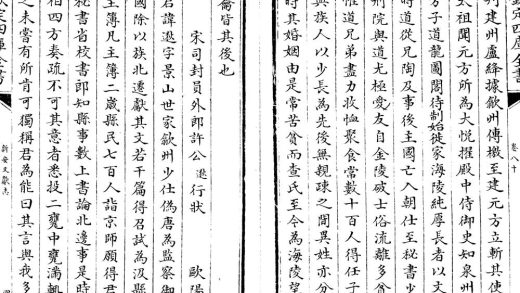 欽定四庫全書
卷八十
判建州盧絳據歙州傳檄至建元方立斬其使
太祖聞元方所為大悅擢殿中侍御史知泉州
方子道龍圖閣待制始徙家海陵純厚長者以文
時道從兄陶及事後主國亡入朝仕至秘書少
刑院與道尤極愛友自金陵破士俗流離多曾
惟道兄弟盡力收恤聚食常數十百人得任子
與族人以少長為先後無親疎之間異姓亦分
時其婚姻由是常苦貧而查氏至今為海陵望
裔皆其後也
宋司封員外郎許公逖行狀
歐陽
君諱逖字景山世家歙州少仕偽唐為監察御
國除以族北遷獻其文若干篇得召試為汲縣
主簿凡主簿二歲縣民七百人詣京師願得君
秘書省校書郎知縣事數上書論北邊事是時
相四方奏疏不可其意者悉投二甕中甕滿輒
之未嘗有所肯可獨稱君為能曰其言與我多
新安文獻志
欽定四庫全書